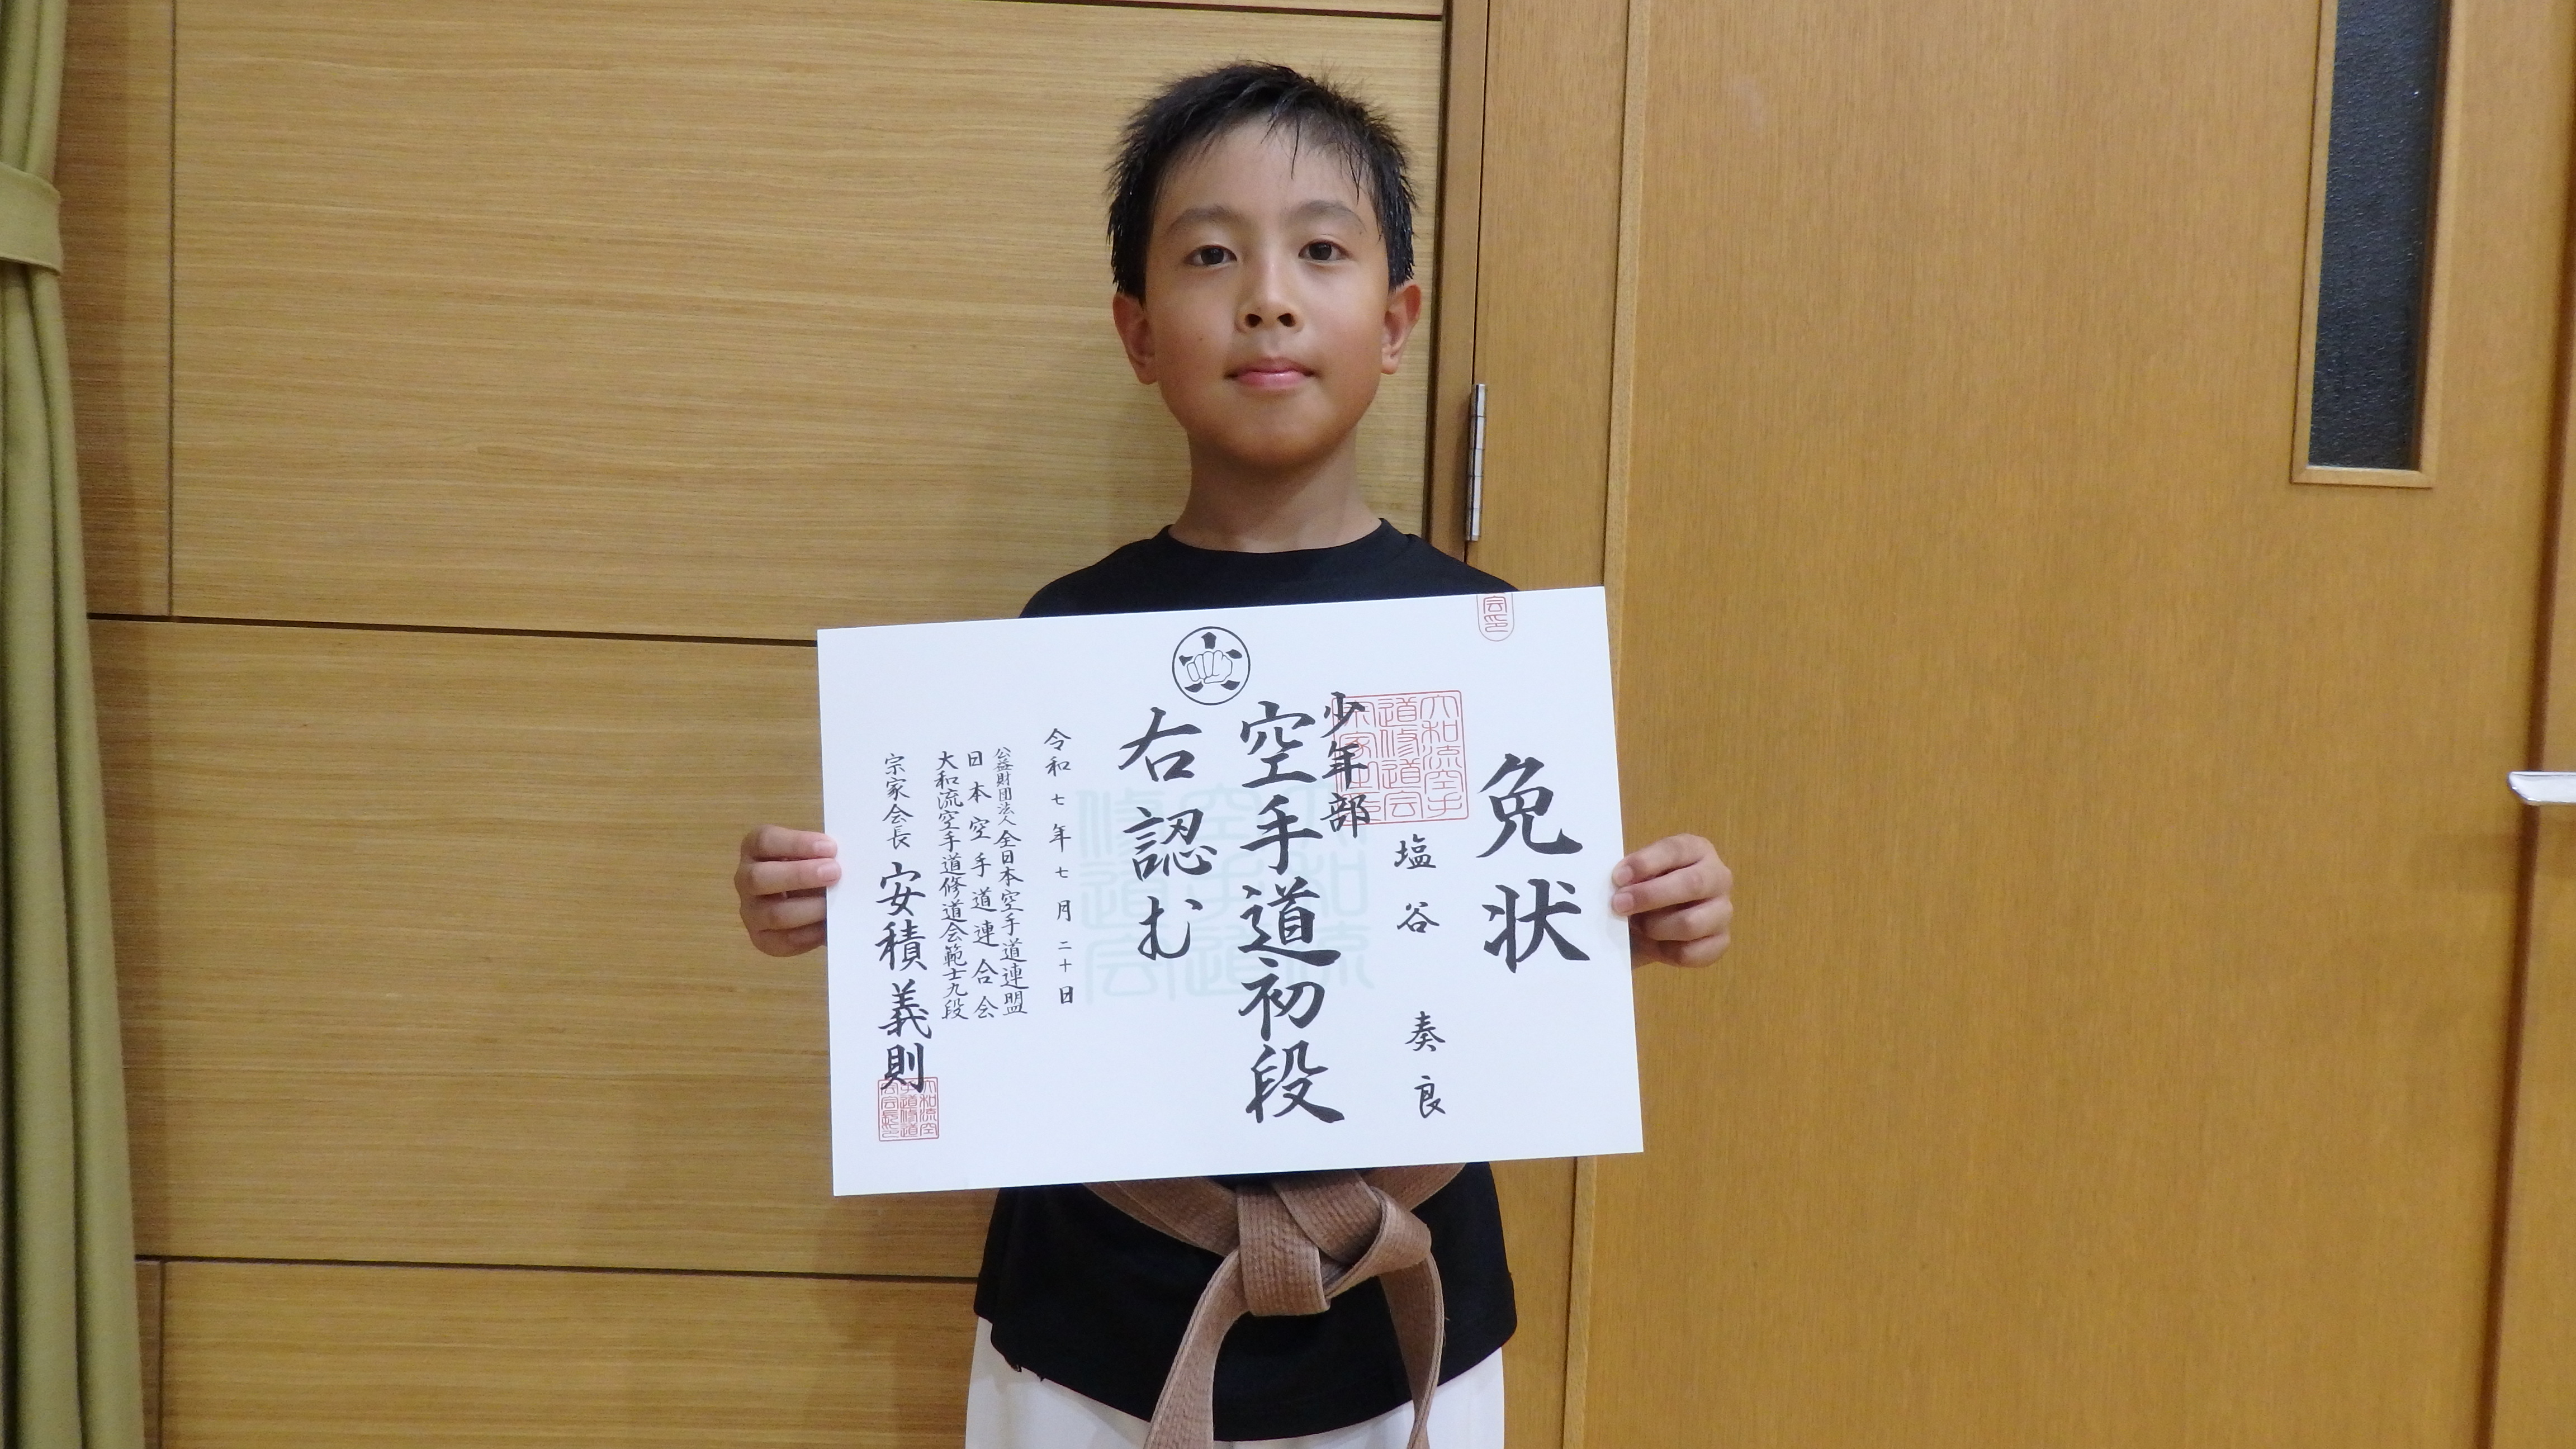 免状
塩谷 奏良
少年部
空手道初段
右認む
令和七年七月二十日
公益財団法人全日本空手道連盟
日本空手道連合会
大和流空手道修道会範士九段
宗家会長 安積義則